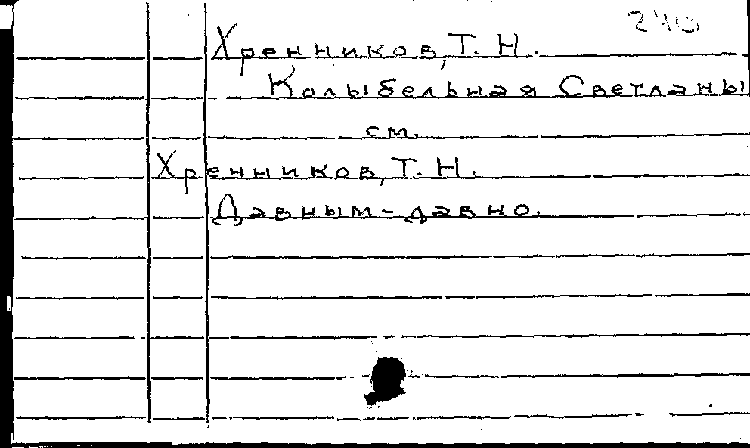 Хренников, Т. Н.
Колыбельная Светланы
см.
Хренников, Т. Н.
Давным-давно.